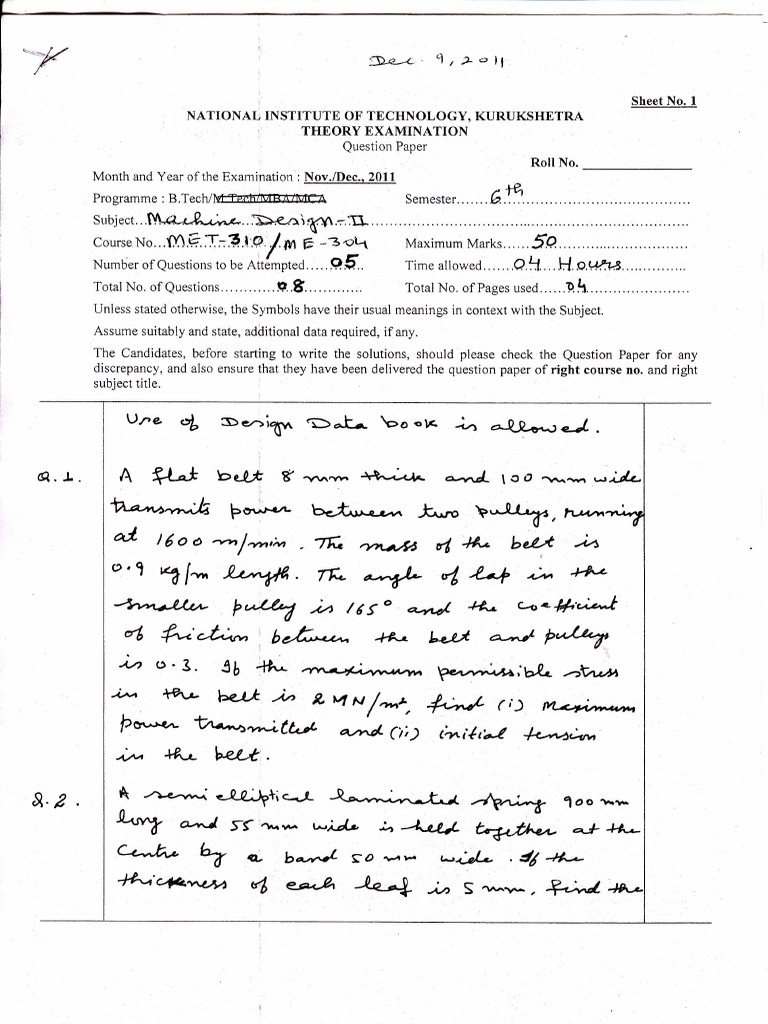 Dec. 9, 2011
Sheet No. 1
NATIONAL INSTITUTE OF TECHNOLOGY, KURUKSHETRA
THEORY EXAMINATION
Question Paper
Roll No. ________________
Month and Year of the Examination : Nov./Dec., 2011
Programme : B.Tech/M.Tech/MBA/MCA Semester......6th
Subject...Machine Design-II
Course No...MET-310/ME-304 Maximum Marks......50
Number of Questions to be Attempted.....05 Time allowed......04 Hours
Total No. of Questions............08 Total No. of Pages used.....04
Unless stated otherwise, the Symbols have their usual meanings in context with the Subject.
Assume suitably and state, additional data required, if any.
The Candidates, before starting to write the solutions, should please check the Question Paper for any
discrepancy, and also ensure that they have been delivered the question paper of right course no. and right
subject title.
Use of Design Data book is allowed.
Q.1. A flat belt 8 mm thick and 100 mm wide
transmits power between two pulleys, running
at 1600 m/min. The mass of the belt is
0.9 kg/m length. The angle of lap in the
smaller pulley is 165° and the coefficient
of friction between the belt and pulleys
is 0.3. If the maximum permissible stress
in the belt is 2 MN/m², find (i) Maximum
power transmitted and (ii) initial tension
in the belt.
Q.2. A semi elliptical laminated spring 900 mm
long and 55 mm wide is held together at the
centre by a band 50 mm wide. If the
thickness of each leaf is 5 mm, find the